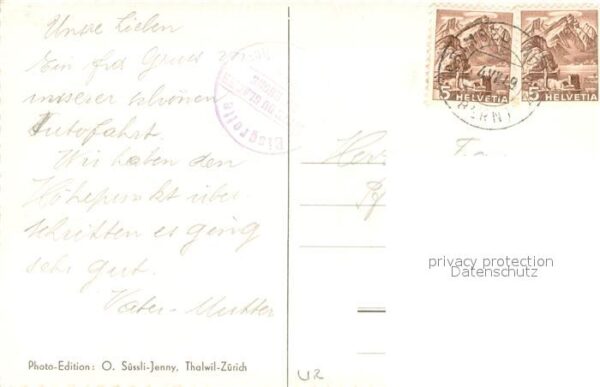 Unsre Lieben
Ein frd Gruss von
unserer schönen
Autofahrt.
Wir haben den
Höhepunkt über-
schritten es ging
sehr gut.
Vater - Mutter
Photo-Edition: O. Süssli-Jenny, Thalwil-Zürich
Eisgrotte
5 HELVETIA
5 HELVETIA
privacy protection
Datenschutz